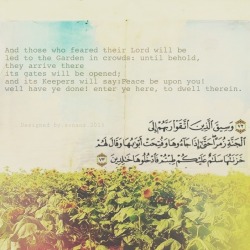 And those who feared their Lord will be
led to the Garden in crowds: until behold,
they arrive there
its gates will be opened;
and its Keepers will say:Peace be upon you!
well have ye done! enter ye here, to dwell therein.
وَسِيقَ الَّذِينَ اتَّقَوْا رَبَّهُمْ إِلَى
الْجَنَّةِ زُمَرًا حَتَّىٰ إِذَا جَاءُوهَا وَفُتِحَتْ أَبْوَابُهَا وَقَالَ لَهُمْ
خَزَنَتُهَا سَلَامٌ عَلَيْكُمْ طِبْتُمْ فَادْخُلُوهَا خَالِدِينَ